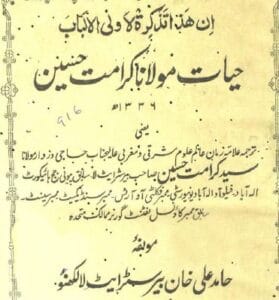 ان هذا تذكرة لاولى الالباب
حیات مولانا کرامت حسین
۱۳۳۶
916
یعنی
ترجمہ علامہ زمان عالم علوم مشرقی و مغربی عالیجناب حاجی و زوار مولانا
سید کرامت حسین صاحب بیرسٹرایٹ لا سابق ہونے جج ہائیکورٹ
الہ آباد۔ فیلو آف الہ آباد یونیورسٹی ممبر فیکلٹی آف آرٹس۔ ممبر سنڈیکیٹ ممبر سینٹ۔
سابق ممبر کاونسل لفٹنٹ گورنر ممالک متحدہ
مولفہ
حامد علی خان بیرسٹرایٹ لا لکھنؤ